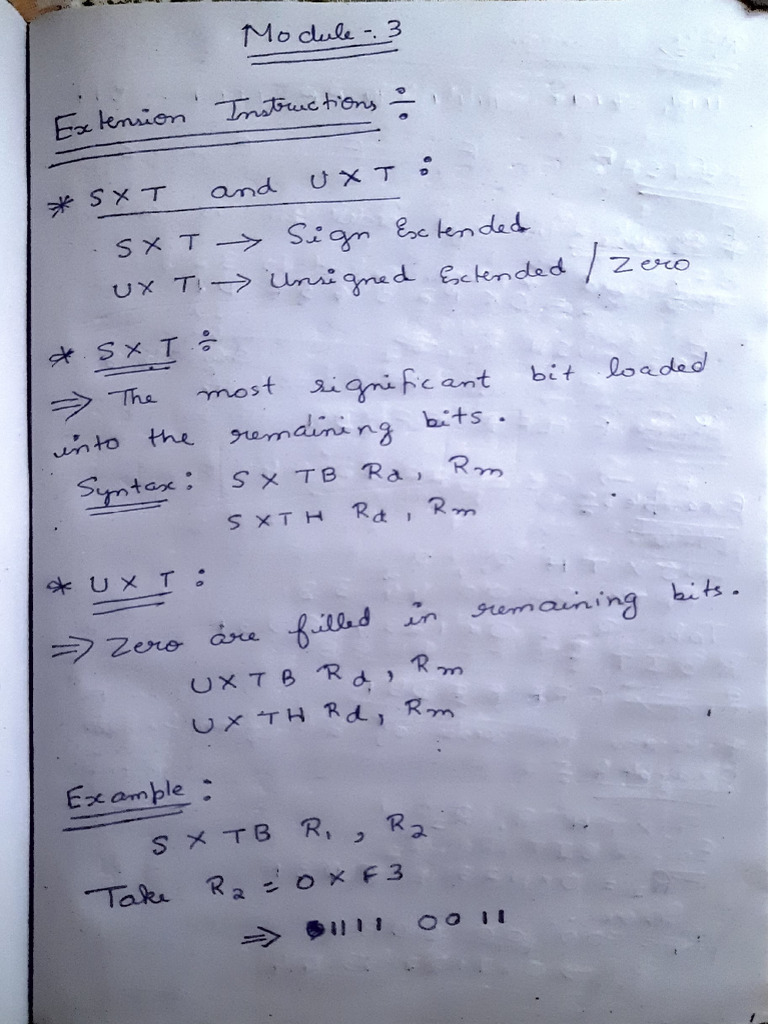 Module - 3
Extension Instructions ÷
* SXT and UXT :
SXT → Sign Extended
UXT → Unsigned Extended / Zero
* SXT ÷
⇒ The most significant bit loaded
into the remaining bits.
Syntax : SXTB Rd, Rm
SXTH Rd, Rm
* UXT :
⇒ Zero are filled in remaining bits.
UXTB Rd, Rm
UXTH Rd, Rm
Example :
SXTB R1, R2
Take R2 = 0XF3
⇒ 1111 0011